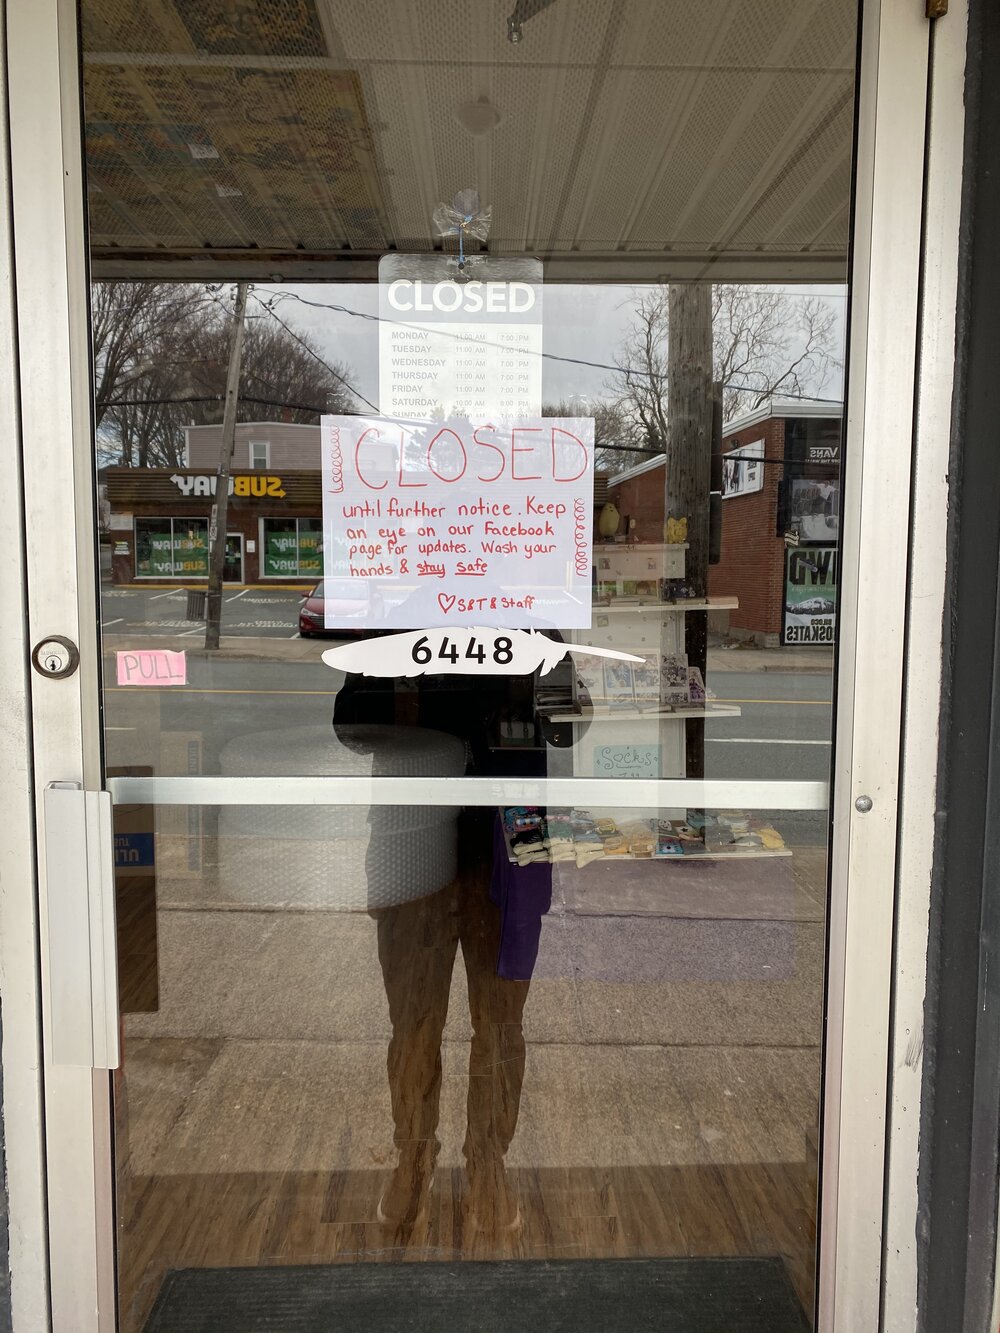 CLOSED
MONDAY 11:00 AM 7:00 PM
TUESDAY 11:00 AM 7:00 PM
WEDNESDAY 11:00 AM 7:00 PM
THURSDAY 11:00 AM 7:00 PM
FRIDAY 11:00 AM 7:00 PM
SATURDAY 10:00 AM 8:00 PM
SUNDAY
CLOSED
until further notice. Keep
an eye on our Facebook
page for updates. Wash your
hands & stay safe
♡ S&T & Staff
6448
PULL
SUBWAY
SUBWAY
SUBWAY
VANS
"OFF THE WALL"
Socks